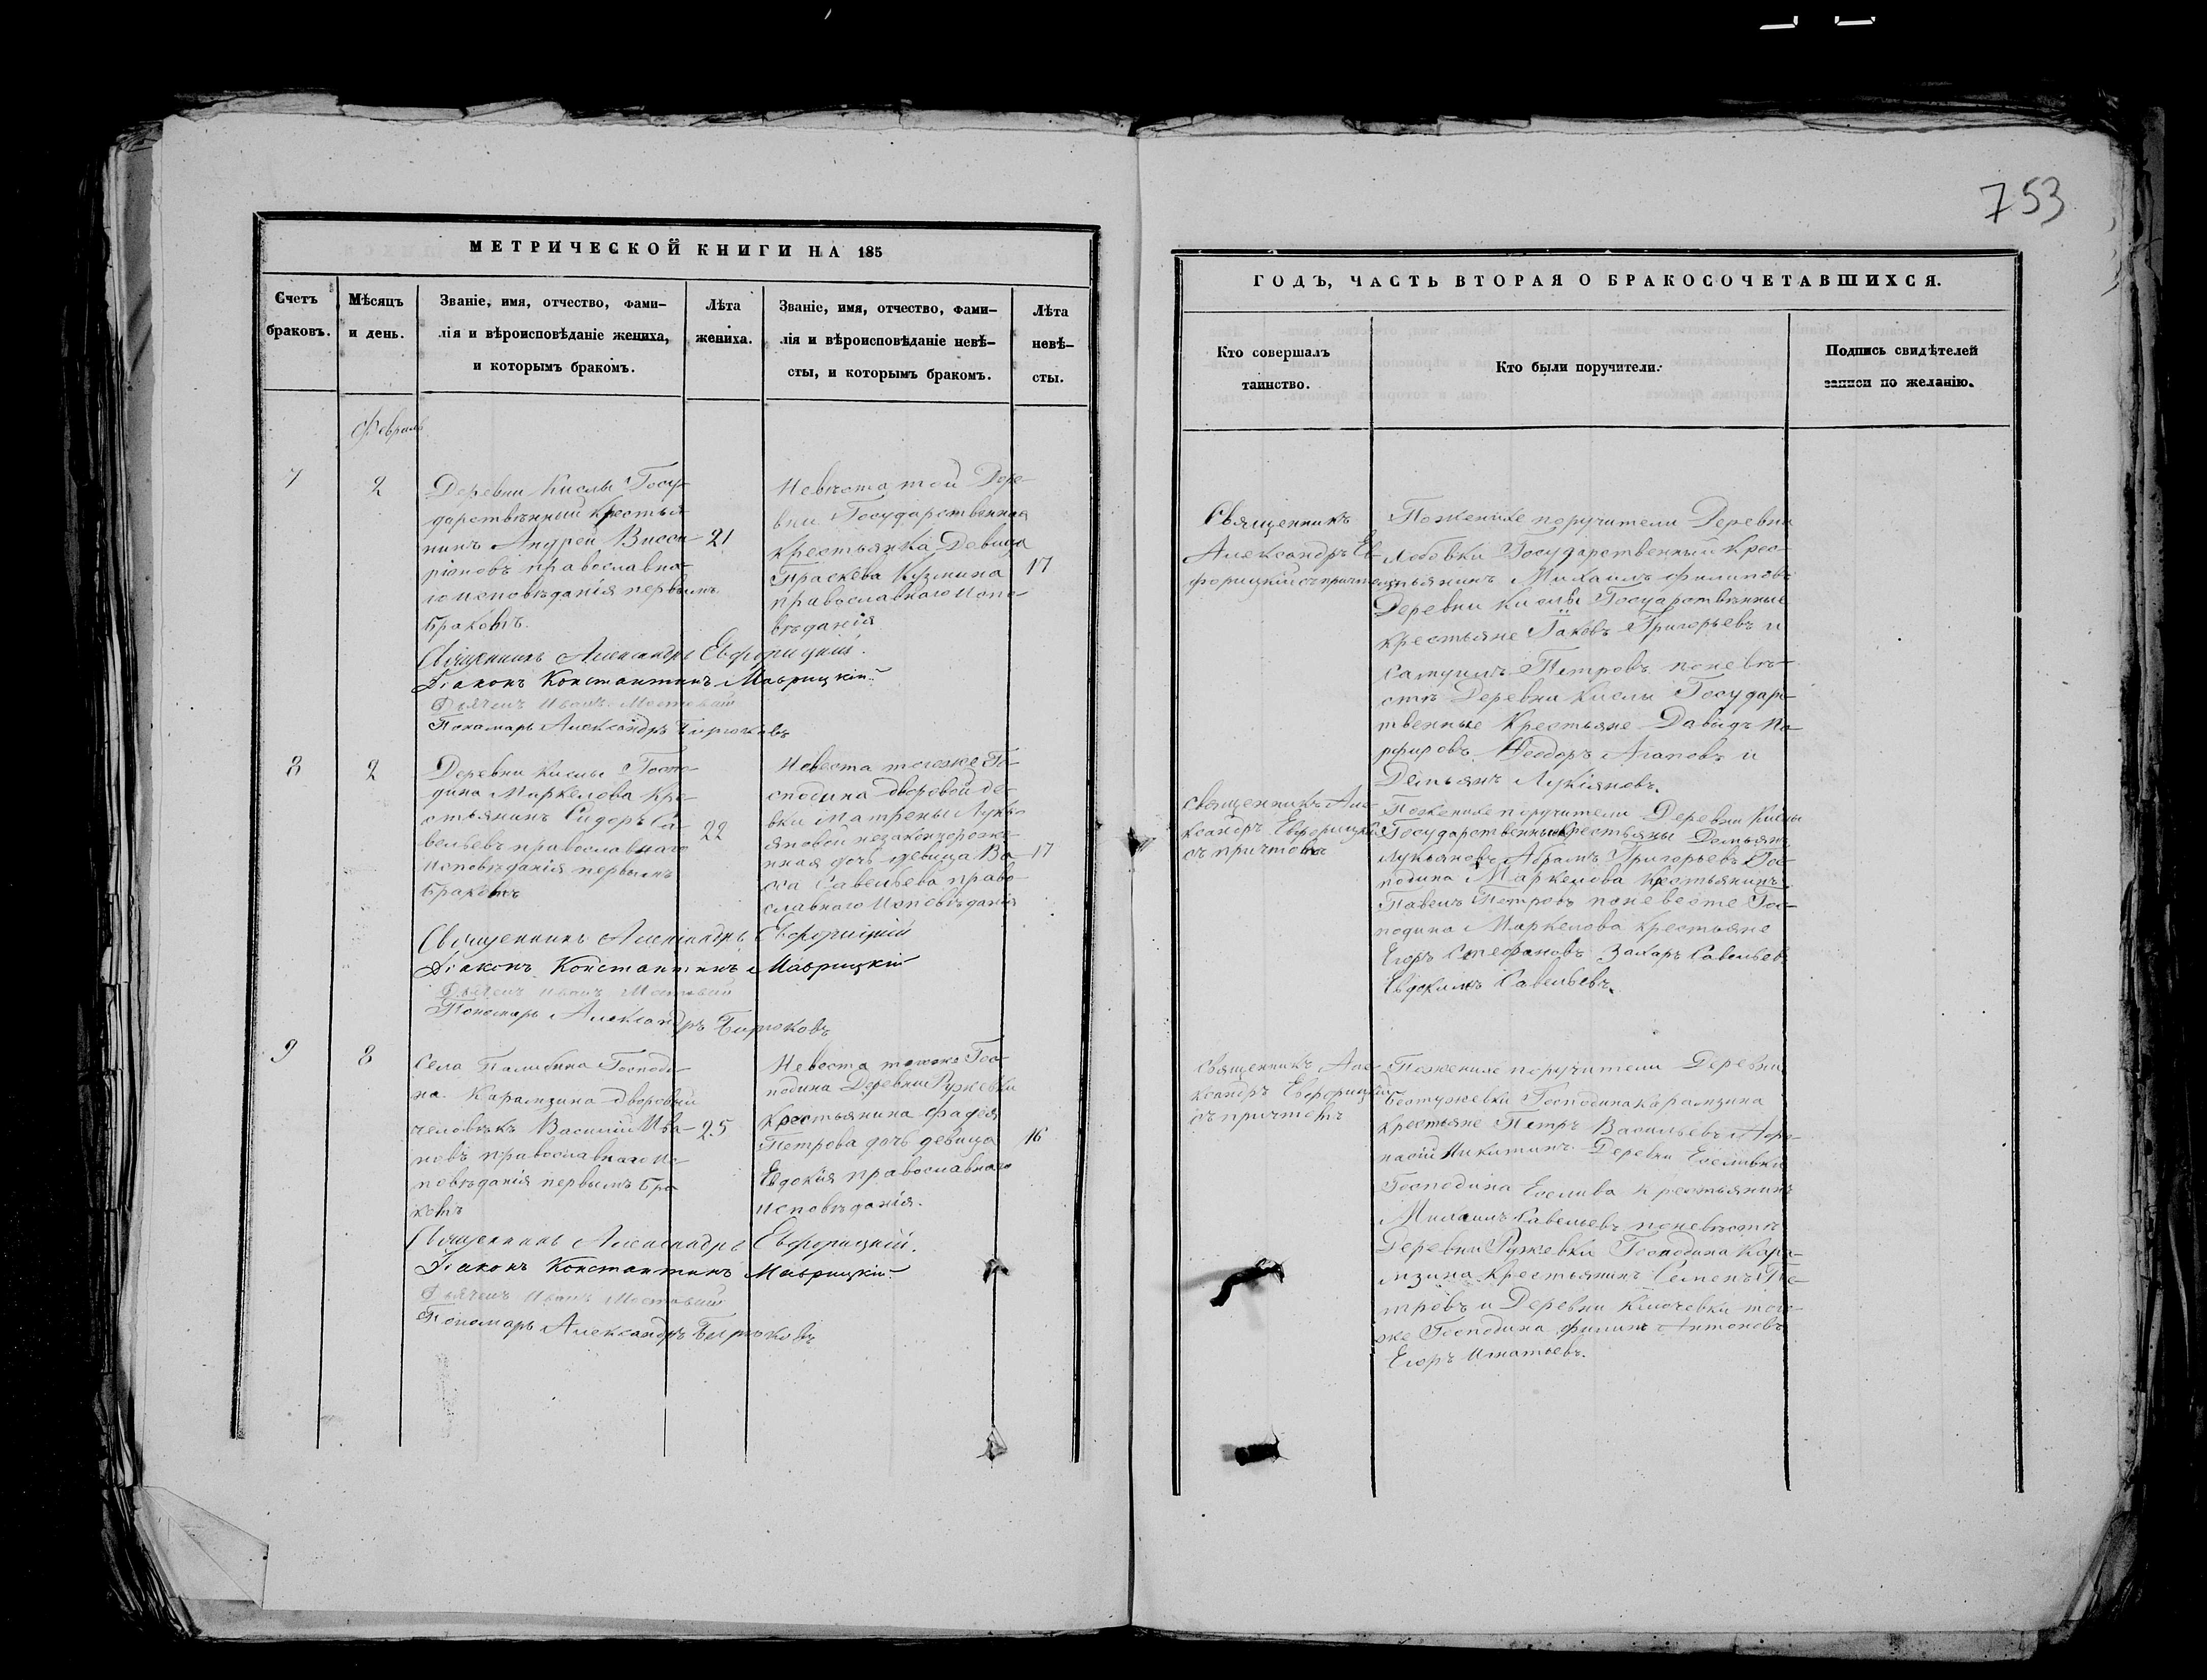 753
МЕТРИЧЕСКОЙ КНИГИ НА 185
Счетъ браковъ.
Мѣсяцъ и день.
Званіе, имя, отчество, фами-
лія и вѣроисповѣданіе жениха,
и которымъ бракомъ.
Лѣта жениха.
Званіе, имя, отчество, фами-
лія и вѣроисповѣданіе невѣ-
сты, и которымъ бракомъ.
Лѣта невѣ-
сты.
Февраль
7
2
Деревни Кислы Госу-
дарствѣнный крестья
нинъ Андрей Висса
ріоновъ православна-
го исповѣданія первымъ
бракомъ.
21
Невѣста той Дере-
вни Государственная
крестьянка Девица
Праскева Кузмина
православнаго испо-
вѣданія
17
Священникъ Александръ Евфорицкій.
Діаконъ Константинъ Маврицкій
Дьячекъ Иванъ
Пономарь Александръ Бирюковъ
8
2
Деревни Кислы Госпо-
дина Маркелова кре-
стьянинъ Сидоръ Са-
вельевъ православнаго
исповѣданія первымъ
бракомъ
22
Невеста тогоже Го-
сподина дворовой де-
вки Матрены Лукь-
яновой незаконорож-
нная дочь девица Ва-
са Савельева право-
славнаго исповѣданія
17
Священникъ Александръ Евфорицкій
Діаконъ Константинъ Маврицкій
Дьячекъ Иванъ
Пономарь Александръ Бирюковъ
9
8
Села Палибина Господи-
на Карамзина дворовый
человѣкъ Василий Ива-
новъ православнаго ис-
повѣданія первымъ бра
комъ
25
Невеста тогоже Гос-
подина Деревни Ружевки
крестьянина Фадея
Петрова дочь девица
Евдокия православнаго
исповѣданія.
16
Священникъ Александръ Евфорицкій.
Діаконъ Константинъ Маврицкій
Дьячекъ Иванъ
Пономарь Александръ Бирюковъ
ГОДЪ, ЧАСТЬ ВТОРАЯ О БРАКОСОЧЕТАВШИХСЯ.
Кто совершалъ
таинство.
Кто были поручители.
Подпись свидѣтелей
записи по желанію.
Священникъ
Александръ Ев-
форицкій съ причтомъ
Поженихе поручители Деревни
Государственный крес-
тьянинъ Михаилъ Филиповъ
Деревни Кислы Госуарствѣнные
крестьяне Іаковъ Григорьевъ и
Самуилъ Петровъ поневѣ-
сте Деревни Кислы Государс-
твенные Крестьяне Давыдъ По
рфировъ Феодоръ Агаповъ и
Демьянъ Лукіяновъ.
Священникъ Але-
ксандръ Евфорицкій
съ причтомъ
Поженихе поручители Деревни Кислы
Государственные крестьяны Демьянъ
Лукьяновъ Абрамъ Григорьевъ Гос-
подина Маркелова крестьянинъ
Павелъ Петровъ поневесте Гос-
подина Маркелова крестьяне
Егоръ Стефановъ Захаръ Савельевъ
Евдокимъ Савельевъ.
Священникъ Але-
ксандръ Евфорицкій
съ причтомъ
Поженихе поручители Деревни
Бестужевки Господина Карамзина
крестьяне Петръ Васильевъ Афа-
насий Никитинъ Деревни
Господина крестьянинъ
Михаилъ Савельевъ поневѣсте
Деревни Ружевки Господина Кара-
мзина Крестьянинъ Семенъ Пе-
тровъ и Деревни Ключевки того-
же Господина Филипъ Антоновъ
Егоръ Игнатьевъ.